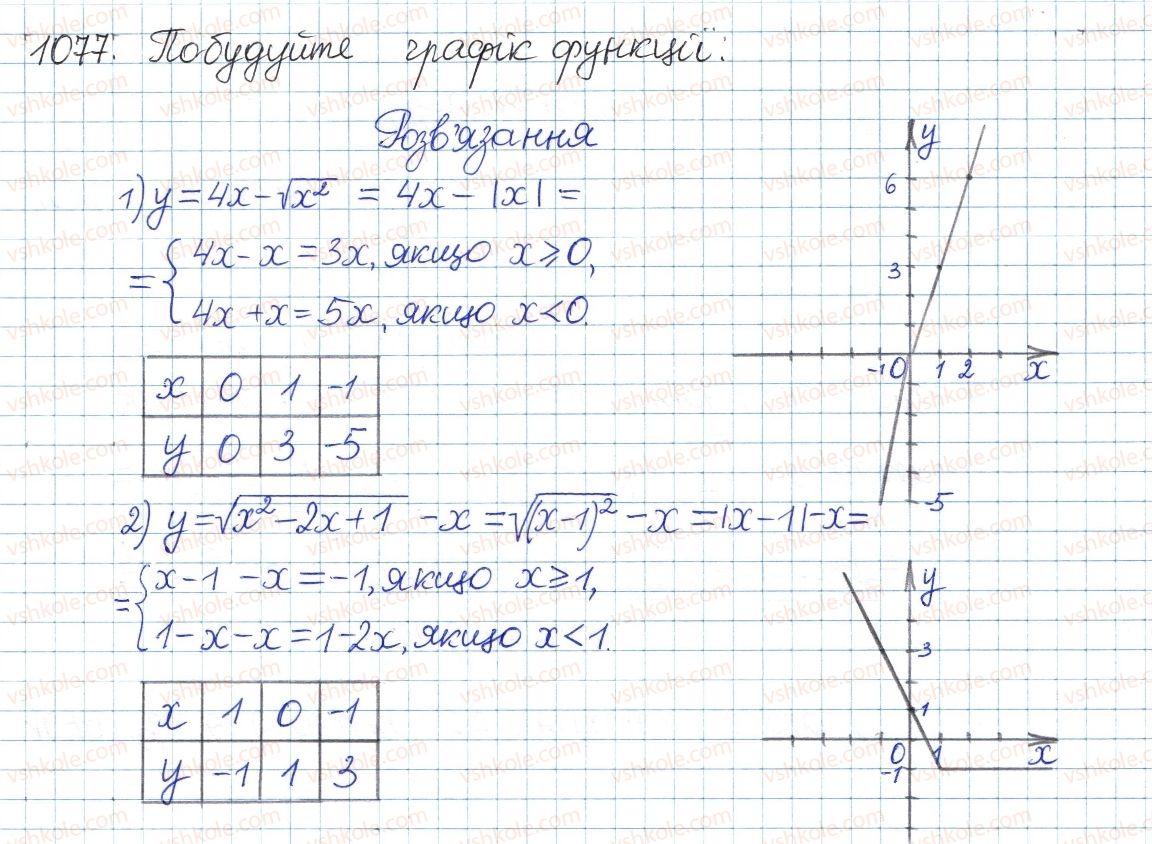 1077. Побудуйте графік функції:
Розв'язання
1) y = 4x - √x² = 4x - |x| =
= { 4x - x = 3x, якщо x ≥ 0,
4x + x = 5x, якщо x < 0.
x 0 1 -1
y 0 3 -5
y
6
3
-1 0 1 2 x
-5
2) y = √x² - 2x + 1 - x = √(x-1)² - x = |x - 1| - x =
= { x - 1 - x = -1, якщо x ≥ 1,
1 - x - x = 1 - 2x, якщо x < 1.
x 1 0 -1
y -1 1 3
y
3
1
0 1 x
-1